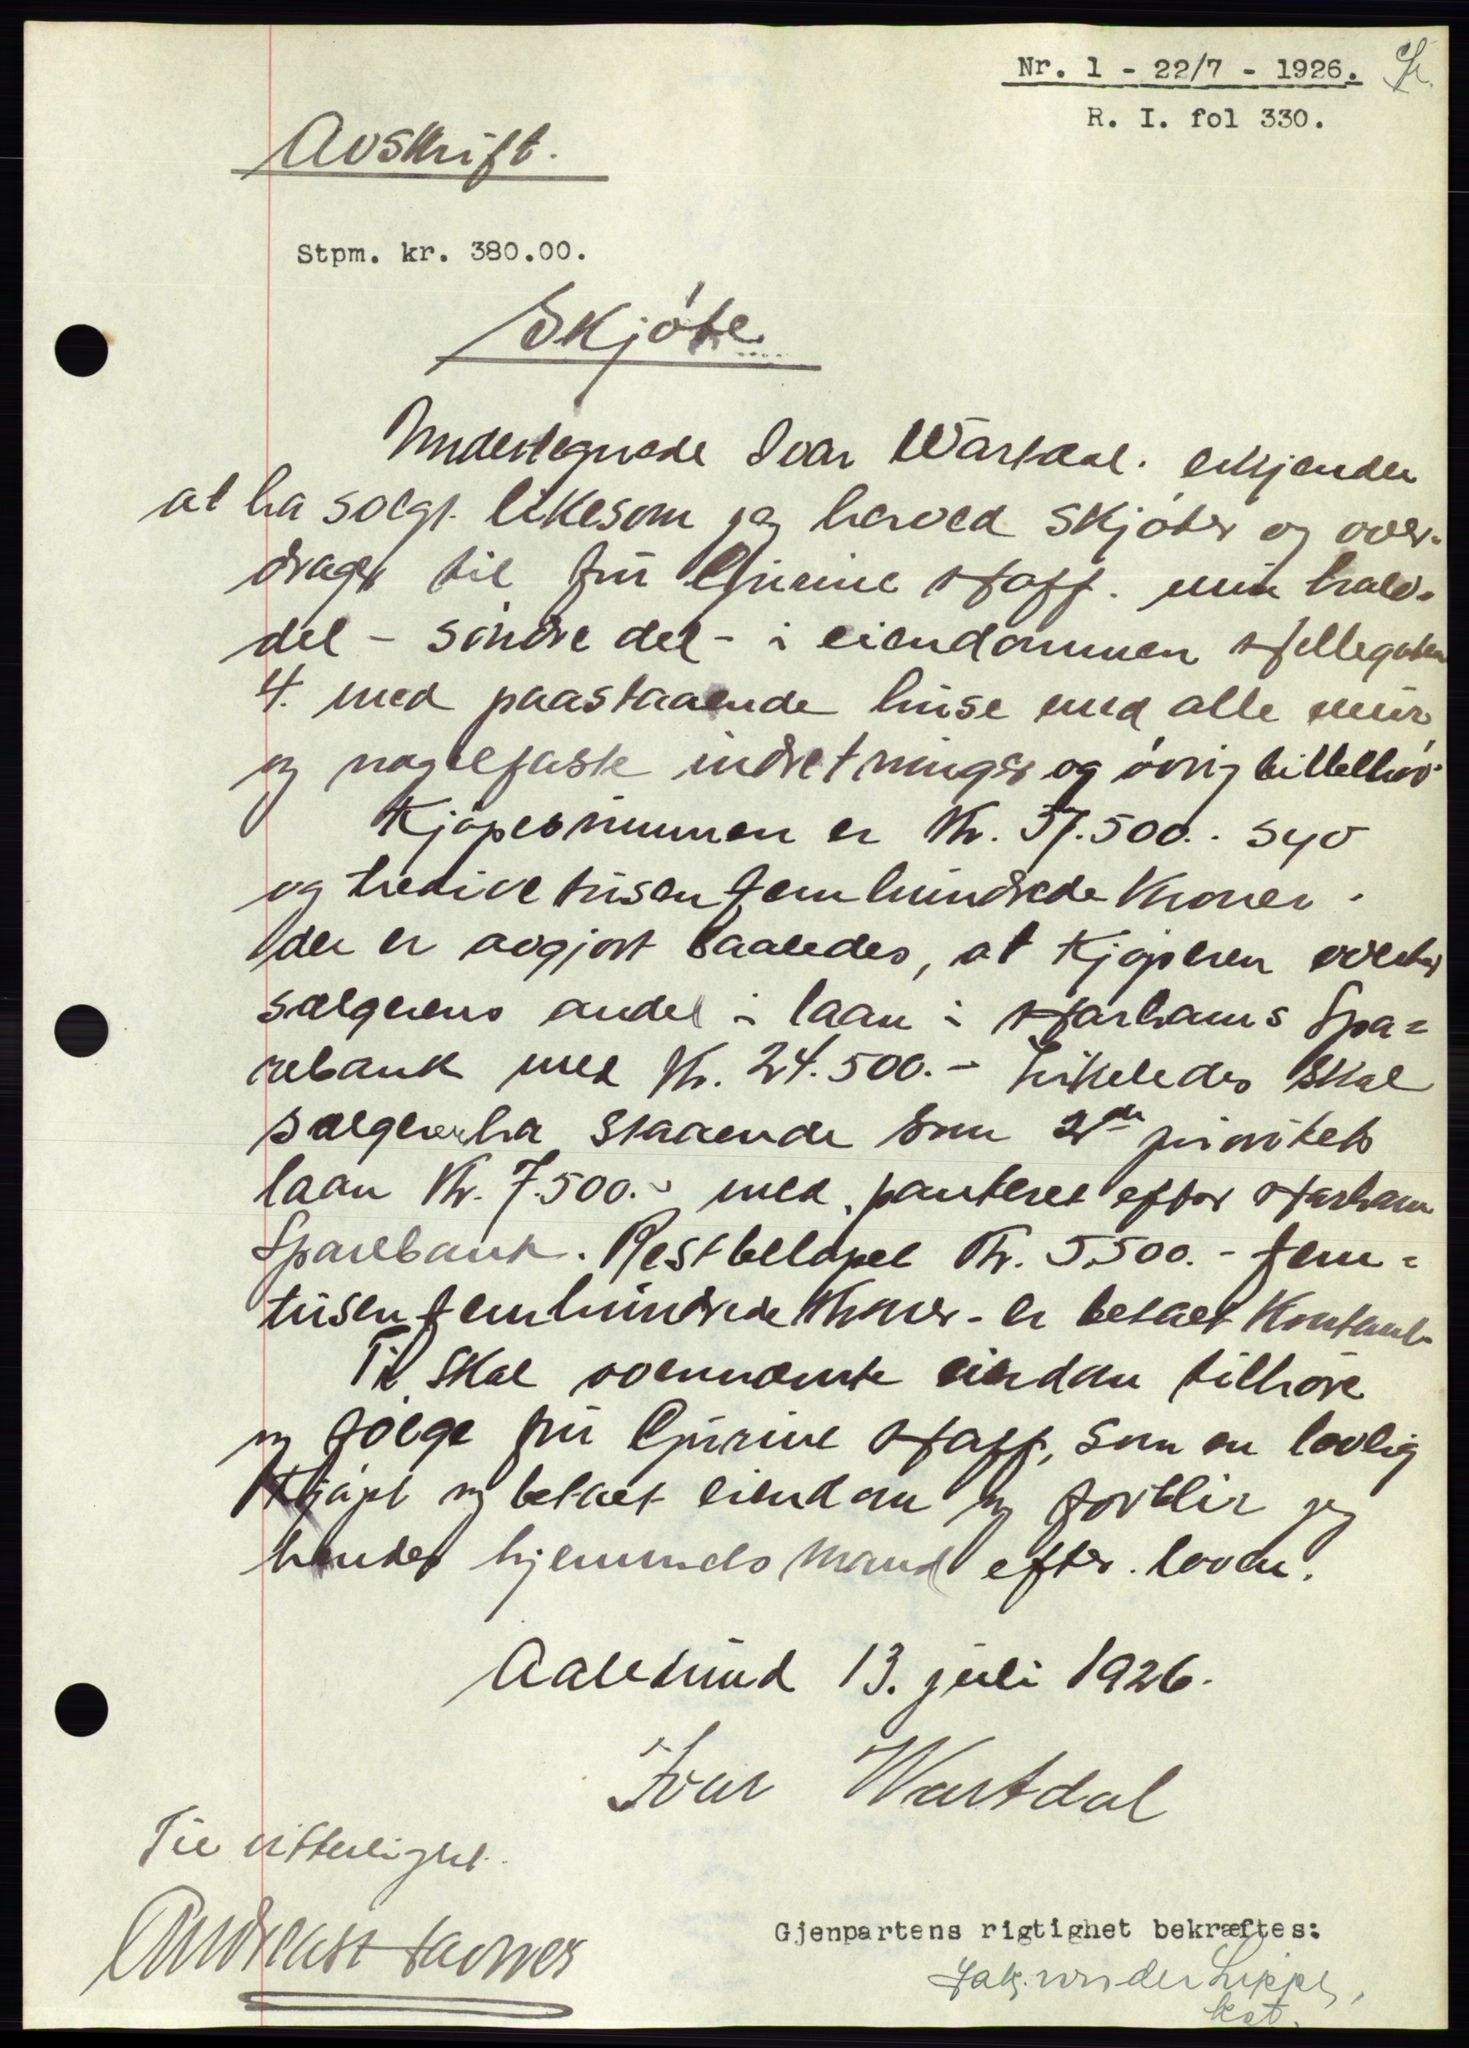 Nr. 1 - 22/7 - 1926.
R. I. fol 330.
Avskrift.
Stpm. kr. 380.00.
Skjøte
Undertegnede Ivar Wartdal. erkjender
at ha solgt. likesom jeg herved skjøter og over-
drager til fru Gurine Hoff. min halv-
del - søndre del - i eiendommen Hellegaten
4. med paastaaende huse med alle mur
og nagelfaste indretninger og øvrig tilbehør.
Kjøpesummen er Kr. 37.500.- syv
og tredive tusen fem hundrede Kroner.
der er avgjort saaledes, at Kjøperen overtar
sælgerens andel i laan i Harhams Spa=
rebank med Kr. 24.500.- Likeledes skal
sælger ha staaende som 2den prioritets
laan Kr. 7.500.- med panteret efter Harham
Sparebank. Restbeløpet Kr. 5.500.- fem=
tusen fem hundrede Kroner - er betalt Kontant.
Ti skal ovennævnte eiendom tilhøre
og følge fru Gurine Hoff, som en lovlig
Kjøpt og betalt eiendom og forblir jeg
hendes hjemmels mand efter loven.
Aalesund 13. juli 1926.
Ivar Wartdal
Til vitterlighet.
Andreas Havnes
Gjenpartens rigtighet bekræftes:
Jak. von der Lippe,
kst.